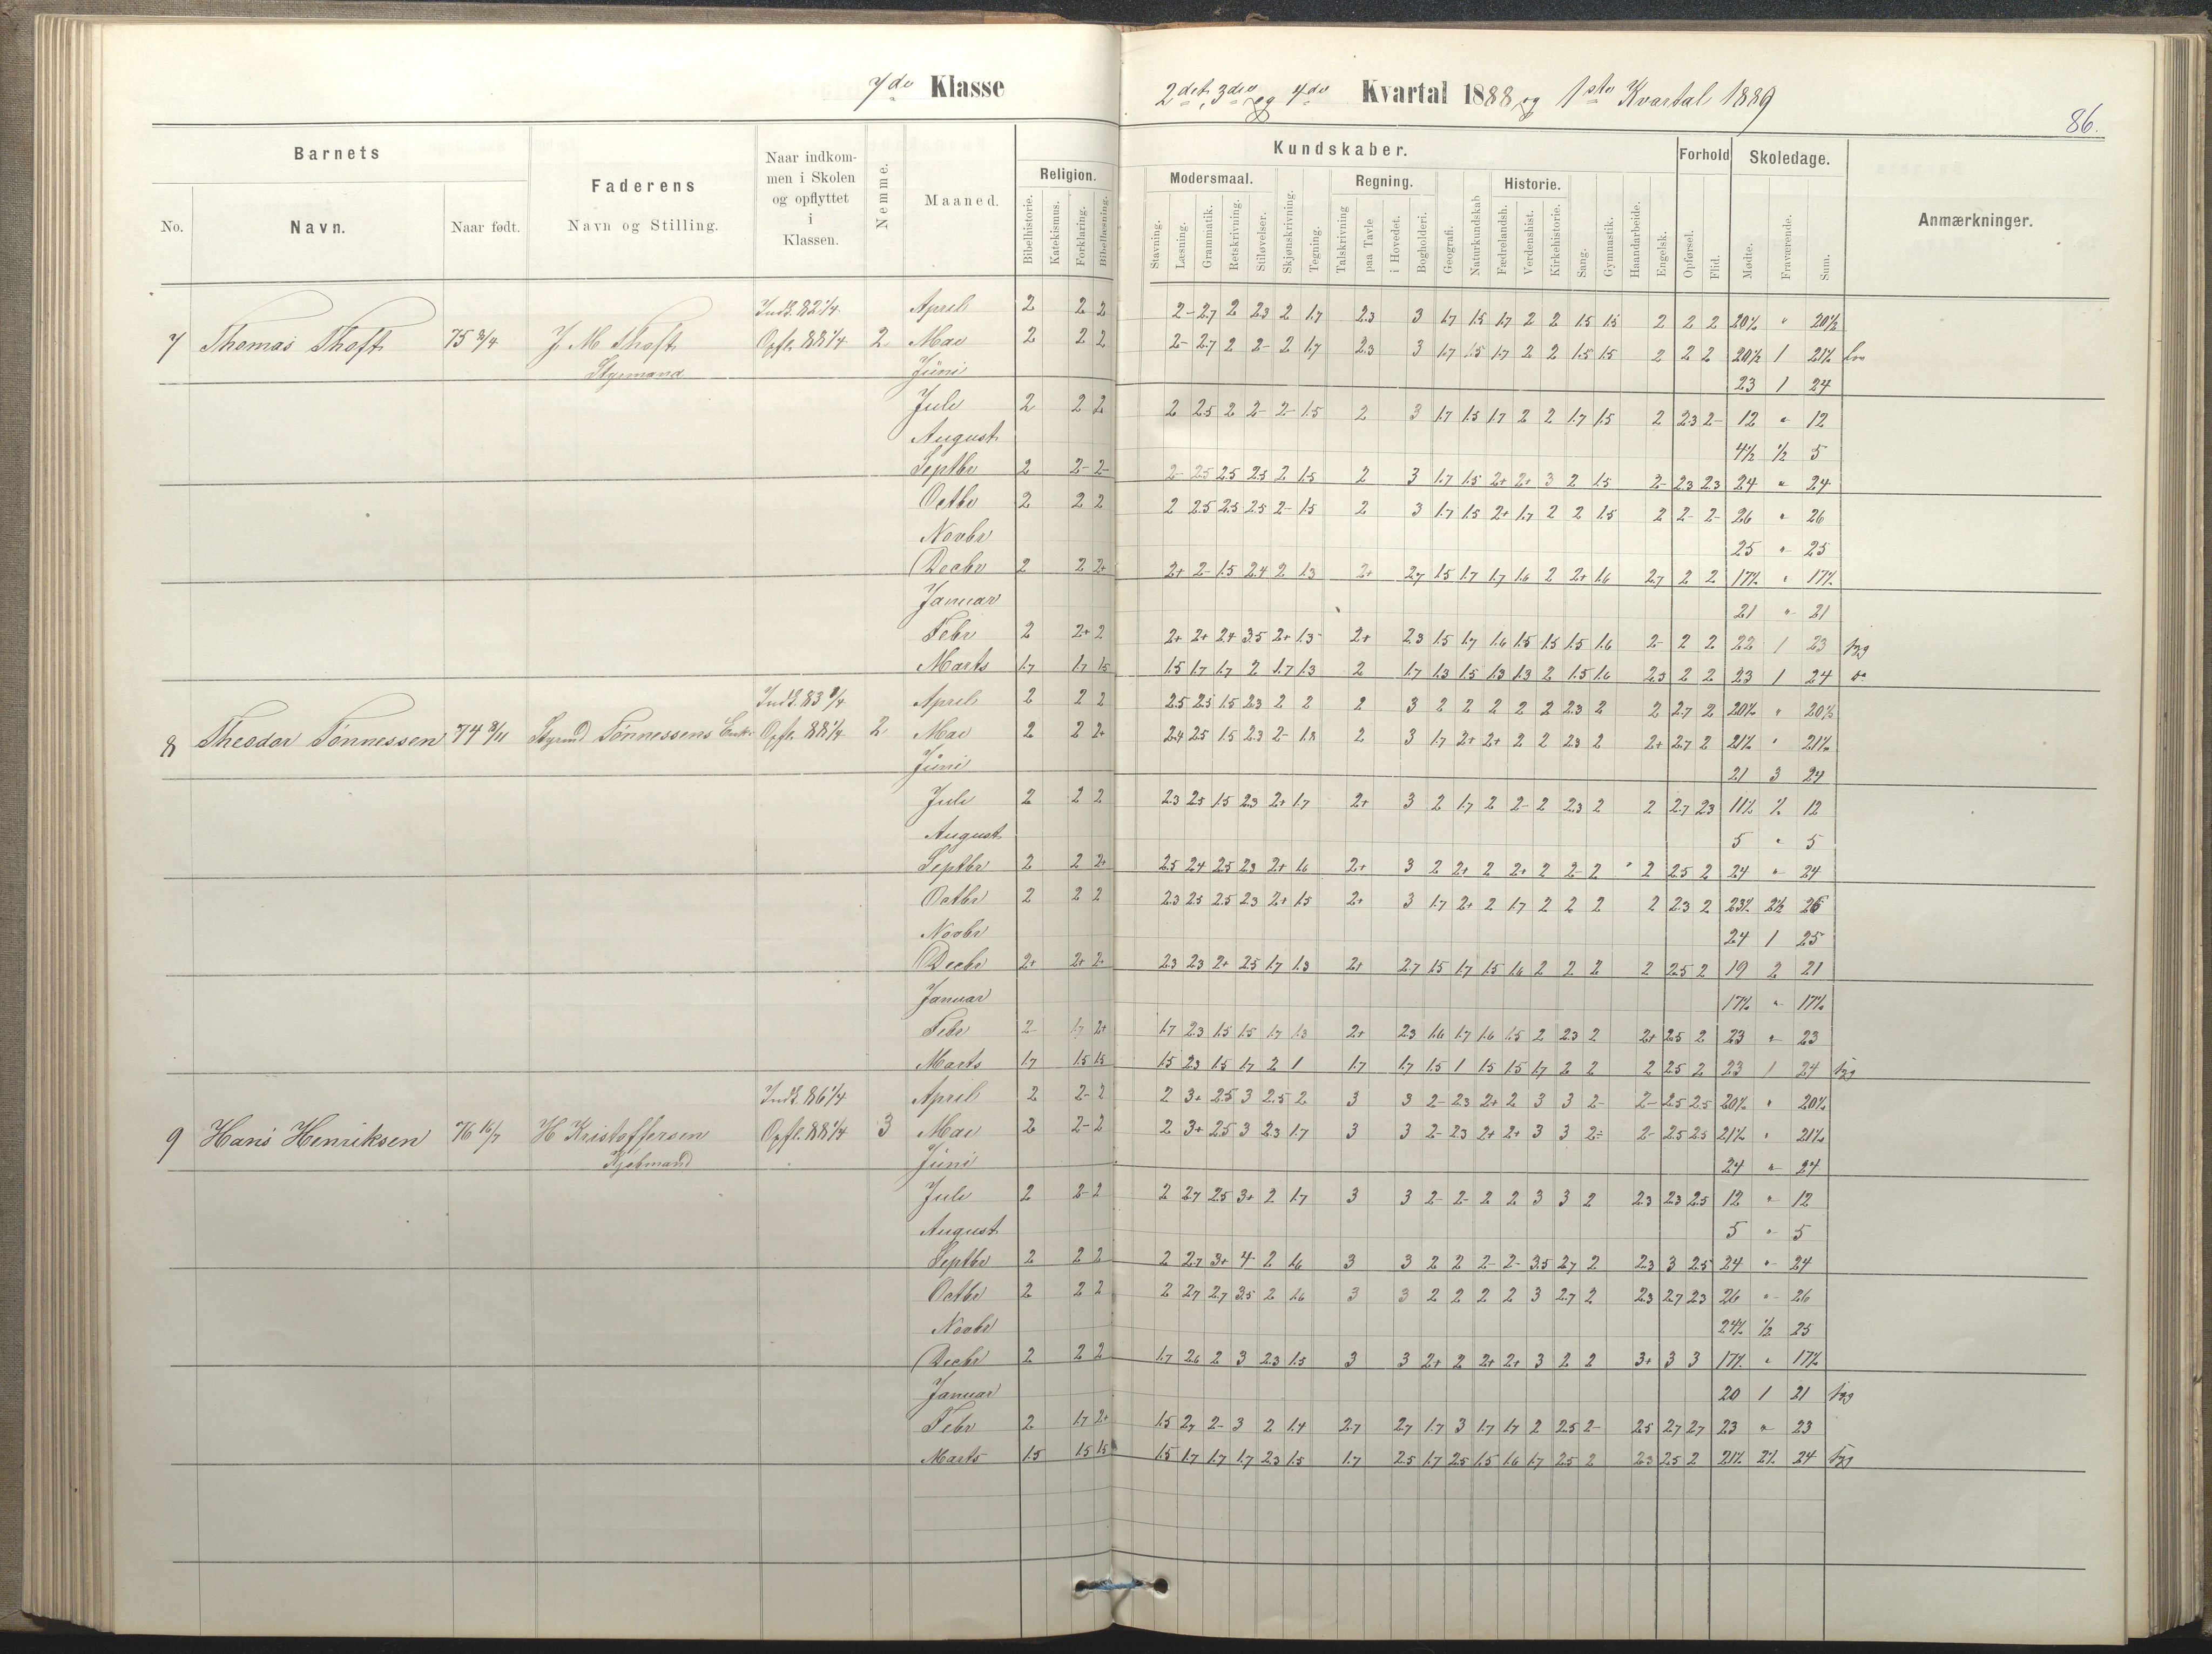 7de Klasse
2det, 3die og 4de Kvartal 1888 og 1ste Kvartal 1889
86.
Barnets
No.
Navn.
Naar født.
Faderens
Navn og Stilling.
Naar indkom-
men i Skolen
og opflyttet
i
Klassen.
Nemme.
Maaned.
Kundskaber.
Religion.
Bibelhistorie.
Katekismus.
Forklaring.
Bibellæsning.
Modersmaal.
Stavning.
Læsning.
Grammatik.
Retskrivning.
Stiløvelser.
Skjønskrivning.
Tegning.
Regning.
Talskrivning
paa Tavle
i Hovedet.
Bogholderi.
Geografi.
Naturkundskab
Historie.
Fædrelandsh.
Verdenshist.
Kirkehistorie.
Sang.
Gymnastik.
Haandarbeide.
Engelsk.
Forhold
Opførsel.
Flid.
Skoledage.
Møde.
Fraværende.
Sum.
Anmærkninger.
Indt. 82 1/4 April 2 2 2 2- 2.7 2 2.3 2 1.7 2.3 3 1.7 1.5 1.7 2 2 1.5 1.5 2 2 2 20½ " 20½
7 Thomas Thoft J. M. Thoft Opfl. 88 1/4 2 Mai 2 2 2 2- 2.7 2 2- 2 1.7 2.3 3 1.7 1.5 1.7 2 2 1.5 1.5 2 2 2 20½ 1 21½
Styrmand Juni 23 1 24
Juli 2 2 2 2 2.5 2 2- 2- 1.5 2 3 1.7 1.5 1.7 2 2 1.7 1.5 2 2.3 2- 12 " 12
August 4½ ½ 5
Septbr 2 2- 2- 2- 2.5 2.5 2.5 2 1.5 2 3 1.7 1.5 2+ 2+ 3 2 1.5 2- 2.3 2.3 24 " 24
Octbr 2 2 2 2 2.5 2.5 2.5 2- 1.5 2 3 1.7 1.5 2+ 1.7 2 2 1.5 2 2- 2- 26 " 26
Novbr 25 " 25
Decbr 2 2 2+ 2+ 2- 1.5 2.4 2 1.3 2+ 2.7 1.5 1.7 1.7 1.6 2 2+ 1.6 2.7 2 2 17½ " 17½
Januar 21 " 21
Febr 2 2+ 2 2+ 2+ 2.4 3.5 2+ 1.3 2+ 2.3 1.5 1.7 1.6 1.5 1.5 1.5 1.6 2- 2 2 22 1 23
Marts 1.7 1.7 1.5 1.5 1.7 1.7 2 1.7 1.3 2 1.7 1.3 1.5 1.3 1.3 2 1.5 1.6 2.3 2 2 23 1 24
April 2 2 2 2.5 2.5 1.5 2.3 2 2 2 3 2 2 2 2 2 2.3 2 2 2.7 2 20½ " 20½
8 Theodor Tønnessen Styrmd Tønnessens Enke Opfl. 88 1/4 2 Mai 2 2 2+ 2.4 2.5 1.5 2.3 2- 1.8 2 3 1.7 2+ 2+ 2 2 2.3 2 2+ 2.7 2 21½ " 21½
Juni 21 3 24
Juli 2 2 2 2.3 2.5 1.5 2.3 2+ 1.7 2+ 3 2 1.7 2 2- 2 2.3 2 2 2.7 2.3 11½ ½ 12
August 5 " 5
Septbr 2 2 2+ 2.5 2.4 2.5 2.3 2+ 1.6 2+ 3 2 2+ 2 2+ 2 2- 2 2 2.5 2 24 " 24
Octbr 2 2 2 2.3 2.5 2.5 2.3 2+ 1.5 2+ 3 1.7 2+ 2 1.7 2 2 2 2 2.3 2 23½ 2½ 26
Novbr 24 1 25
Decbr 2+ 2+ 2- 2.3 2.3 2+ 2.5 1.7 1.3 2+ 2.7 1.5 1.7 1.5 1.6 2 2 2 2 2.5 2 19 2 21
Januar 17½ " 17½
Febr 2- 1.7 2+ 1.7 2.3 1.5 1.5 1.7 1.3 2+ 2.3 1.6 1.7 1.6 1.5 2 2.3 2 2+ 2.5 2 23 " 23
Marts 1.7 1.5 1.5 1.5 2.3 1.5 1.7 2 1 1.7 1.7 1.5 1 1.5 1.5 1.7 2 2 2 2.5 2 23 1 24
Indt. 86 1/4 April 2 2- 2 2 3+ 2.5 3 2.5 2 3 3 2- 2.3 2+ 2 3 3 2- 2- 2.5 2.5 20½ " 20½
9 Hans Henriksen 76 16/7 H Kristoffersen Opfl. 88 1/4 3 Mai 2 2- 2 2 3+ 2.5 3 2.3 1.7 3 3 2- 2.3 2+ 2+ 3 3 2÷ 2- 2.5 2.5 21½ " 21½
Kjøbmand Juni 24 " 24
Juli 2 2- 2 2 2.7 2.5 3+ 2 1.7 3 3 2- 2- 2 2 3 3 2 2.3 2.3 2.5 12 " 12
August 5 " 5
Septbr 2 2 2 2 2.7 3+ 4 2 1.6 3 3 2 2 2- 2- 3.5 2.7 2 2.3 3 2.5 24 " 24
Octbr 2 2 2 2 2.7 2.7 3.5 2 1.6 3 3 2 2 2 2 3 2.7 2 2.3 2.7 2.3 26 " 26
Novbr 24½ ½ 25
Decbr 2 2 2 1.7 2.6 2 3 2.3 1.5 3 3 2+ 2 2+ 2+ 3 2 2 3+ 3 3 17½ " 17½
Januar 20 1 21
Febr 2 1.7 2+ 1.5 2.7 2- 3 2 1.4 2.7 2.7 1.7 3 1.7 1.7 2 2.5 2- 2.5 2.7 2.7 23 " 23
Marts 1.5 1.5 1.5 1.5 1.7 1.7 1.7 2.3 1.5 1.7 2.5 1.7 2.5 1.5 1.6 1.7 2.5 2 2.3 2.5 2 21½ 2½ 24